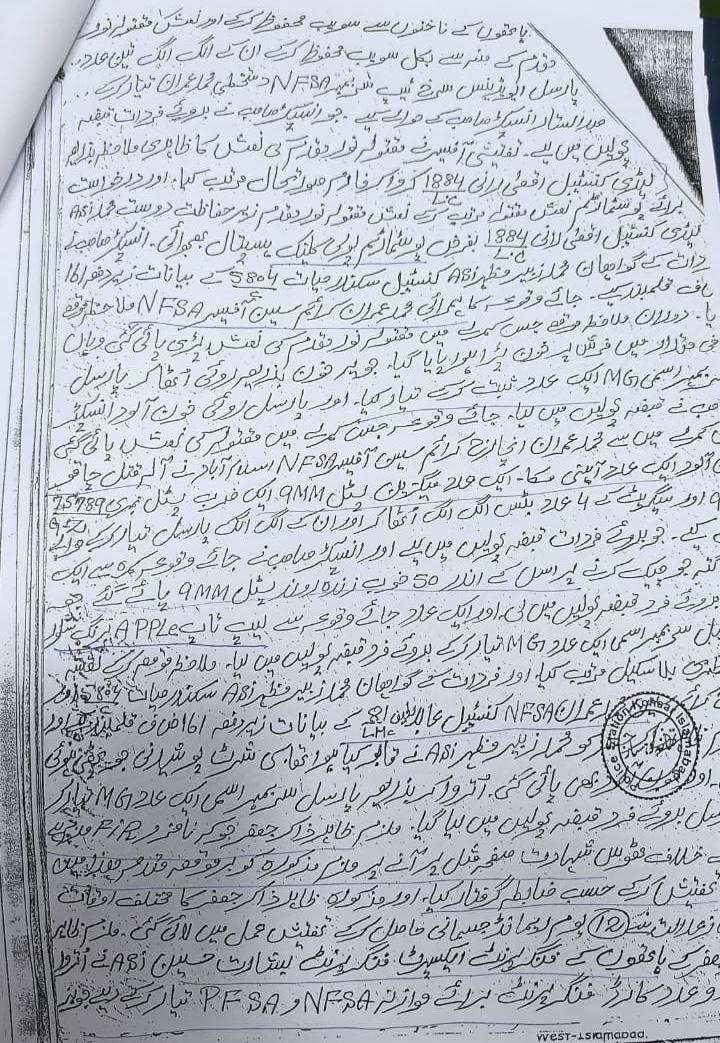 ہاتھوں کے ناخنوں سے سویب محفوظ کرکے اور نعش مقتولہ نور
مقدم کے منہ سے بکل سویب محفوظ کرکے ان کے الگ الگ تین عدد
پارسل NFSA دستخطی محمد عمران تیار کرکے
عبدالستار انسپکٹر صاحب کے حوالے کیے۔ جو انسپکٹر صاحب نے بروئے فردات قبضہ
پولیس میں لیے۔ تفتیشی آفیسر نے مقتولہ نور مقدم کی نعش کا ظاہری ملاحظہ بذریعہ
لیڈی کنسٹیبل اقصیٰ رانی 1884/LC کروا کر فارم صورتحال مرتب کیا۔ اور درخواست
برائے پوسٹمارٹم نعش مقتولہ مرتب کرکے نعش مقتولہ نور مقدم زیر حفاظت دوست محمد ASI
لیڈی کنسٹیبل اقصیٰ رانی 1884/LC بغرض پوسٹمارٹم پولی کلینک ہسپتال بھجوائی۔ انسپکٹر صاحب نے
دات کے گواھان محمد زبیر مظہر ASI کنسٹیبل سکندر حیات 5804 کے بیانات زیر دفعہ 161
ض ف قلمبند کیے۔ جائے وقوعہ کا ہمراہی محمد عمران کرائم سین آفیسر NFSA ملاحظہ موقعہ
یا۔ دوران ملاحظہ موقعہ جس کمرے میں مقتولہ نور مقدم کی نعش پڑی پائی گئی وہاں
فی مقدار میں فرش پر خون پڑا ہوا پایا گیا۔ جو یہ خون بذریعہ روئی اُٹھا کر پارسل
سربمہر اسمی MG ایک عدد ثبت کرکے تیار کیا۔ اور پارسل روئی خون آلود انسپکٹر
حب نے قبضہ پولیس میں لیا۔ جائے وقوعہ جس کمرے میں مقتولہ کی نعش پائی گئی
کمرے میں سے محمد عمران انچارج کرائم سین آفیسر NFSA اسلام آباد نے آلہ قتل چاقو
آلود ایک عدد آہنی مکا۔ ایک عدد میگزین پسٹل 9MM ایک ضرب پسٹل نمبری 75789
اور سیگریٹ کے 4 عدد بٹس الگ الگ اُٹھا کر اور ان کے الگ الگ پارسل تیار کرکے حوالے
کیے۔ جو بروئے فردات قبضہ پولیس میں لیے اور انسپکٹر صاحب نے جائے وقوعہ کمرہ سے ایک
جو چیک کرنے پر اس کے اندر 50 ضرب زندہ روند پسٹل 9MM پائے گئے
بروئے فرد قبضہ پولیس میں لی۔ اور ایک عدد جائے وقوعہ سے لیپ ٹاپ APPLE
سربمہر اسمی ایک عدد MG تیار کرکے بروئے فرد قبضہ پولیس میں لیا۔ ملاحظہ موقعہ کرکے نقشہ
بلا سکیل مرتب کیا اور فردات کے گواھان محمد زبیر مظہر ASI سکندر حیات 5804
عمران NFSA کنسٹیبل LHC کے بیانات زیر دفعہ 161 ض ف قلمبند کیے اور
کو محمد زبیر مظہر ASI نے قابو کیا ہوا تھا کی شرٹ
بھی پائی گئی۔ اتروا کر بذریعہ پارسل سربمہر اسمی ایک عدد MG تیار کر
بروئے فرد قبضہ پولیس میں لیا گیا۔ ملزم ظاہر ذاکر جعفر جو کہ نامزد FIR ملزم ہے
کے خلاف ٹھوس شہادت صفحہ مثل پر آنے پر ملزم مذکورہ کو بر موقعہ مقدمہ ھذا میں
تفتیش کرکے حسب ضابطہ گرفتار کیا۔ اور مذکورہ ظاہر ذاکر جعفر کا مختلف اوقات
از عدالت سے 12 یوم ریمانڈ جسمانی حاصل کرکے تفتیش عمل میں لائی گئی۔ ملزم ظاہر
جعفر کے ہاتھوں کے فنگر پرنٹ ایکسپرٹ فنگر پرنٹ بشارت حسین ASI نے اتروا
دو عدد کارڈ فنگر پرنٹ برائے موازنہ NFSA و PFSA تیار کرکے
Police Station Kohsar Islamabad
WEST-Islamabad.